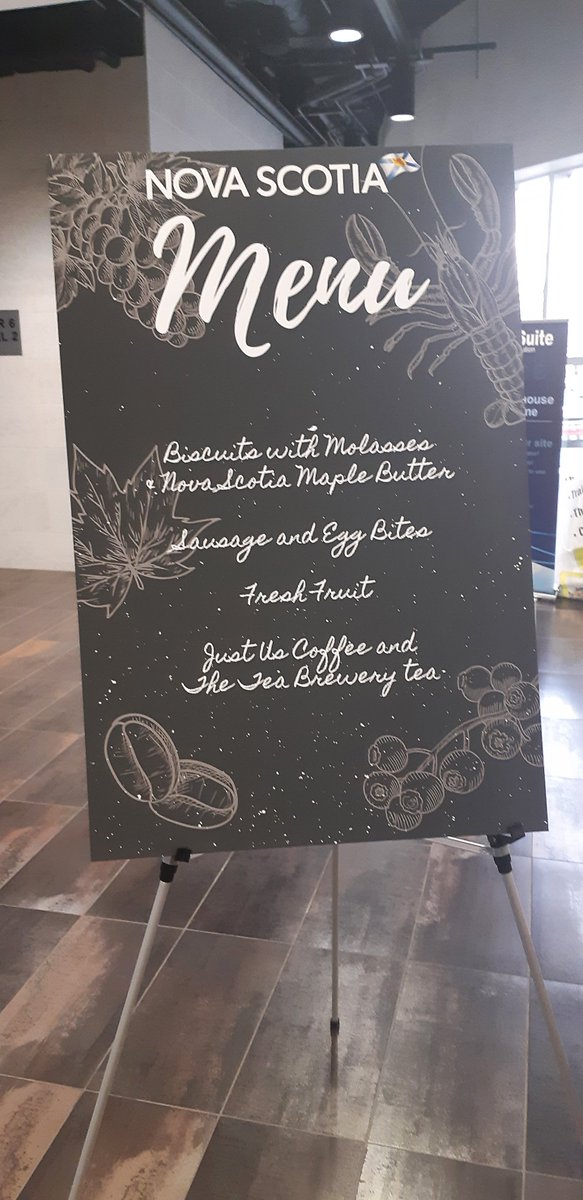 NOVA SCOTIA
Menu
Biscuits with Molasses
& Nova Scotia Maple Butter
Sausage and Egg Bites
Fresh Fruit
Just Us Coffee and
The Tea Brewery tea
R 6
L 2
Suite
house
ne
site